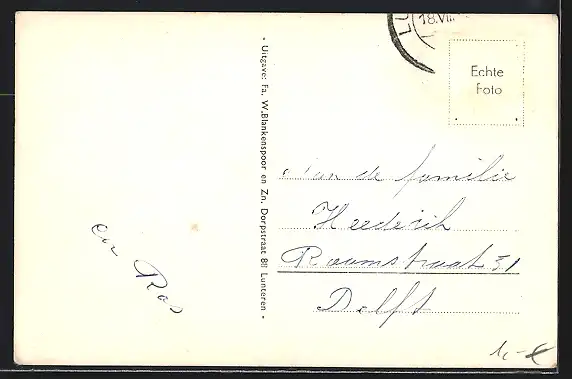 LU
18.VIII
Echte
Foto
* Uitgave: Fa. W. Blankenspoor en Zn. Dorpstraat 811 Lunteren *
Aan de familie
Heederik
Raamstraat 31
Delft
en Ros
1,-€